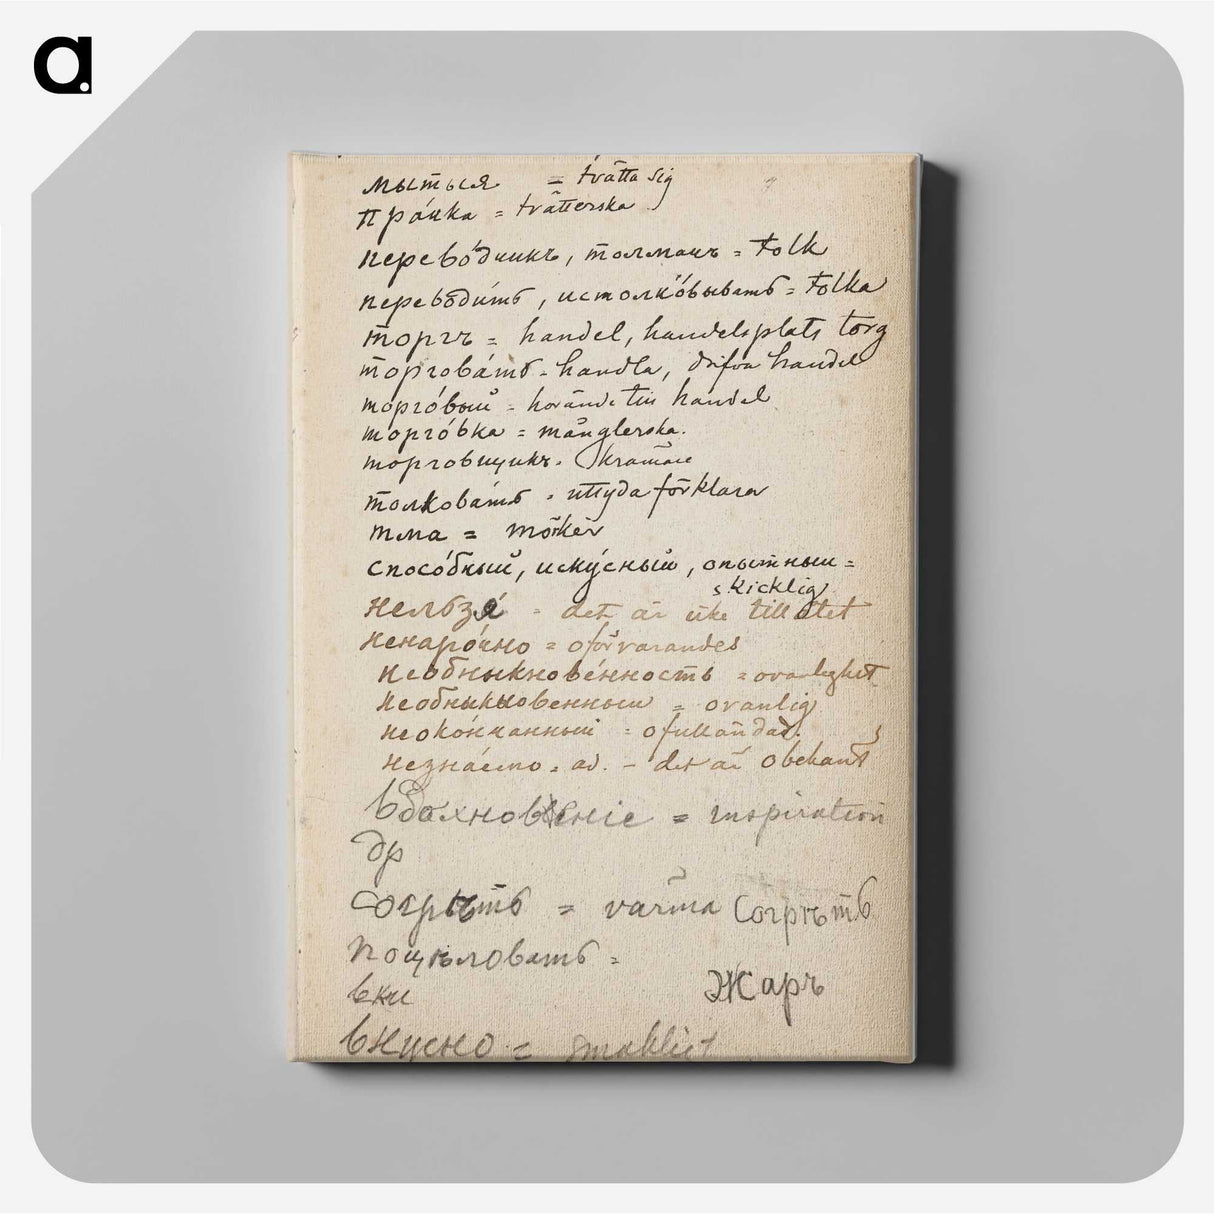 a.
мыться = tvätta sig
прачка = tvätterska
перево́дчикъ, толмачъ = tolk
переводи́ть, истолко́вывать = tolka
торгъ = handel, handelsplats torg
торгова́ть - handla, drifva handel
торго́вый = hörande till handel
торго́вка = månglerska.
торговщикъ. Kramare
толкова́ть . uttyda förklara
тма = mörker
спосо́бный, иску́сный, опытный =
skicklig
нельзя́ - det är icke tillåtet
ненаро́чно = oförvarandes
необыкнове́нность = ovanlighet
необыкновенный = ovanlig
неоко́нчанный = ofulländad.
незна́емо. ad. - det är obekant
вдохновеніе = inspiration
др
согрѣть = värma Согрѣть
поцѣловать =
Жаръ
вки
вкусно = smakligt